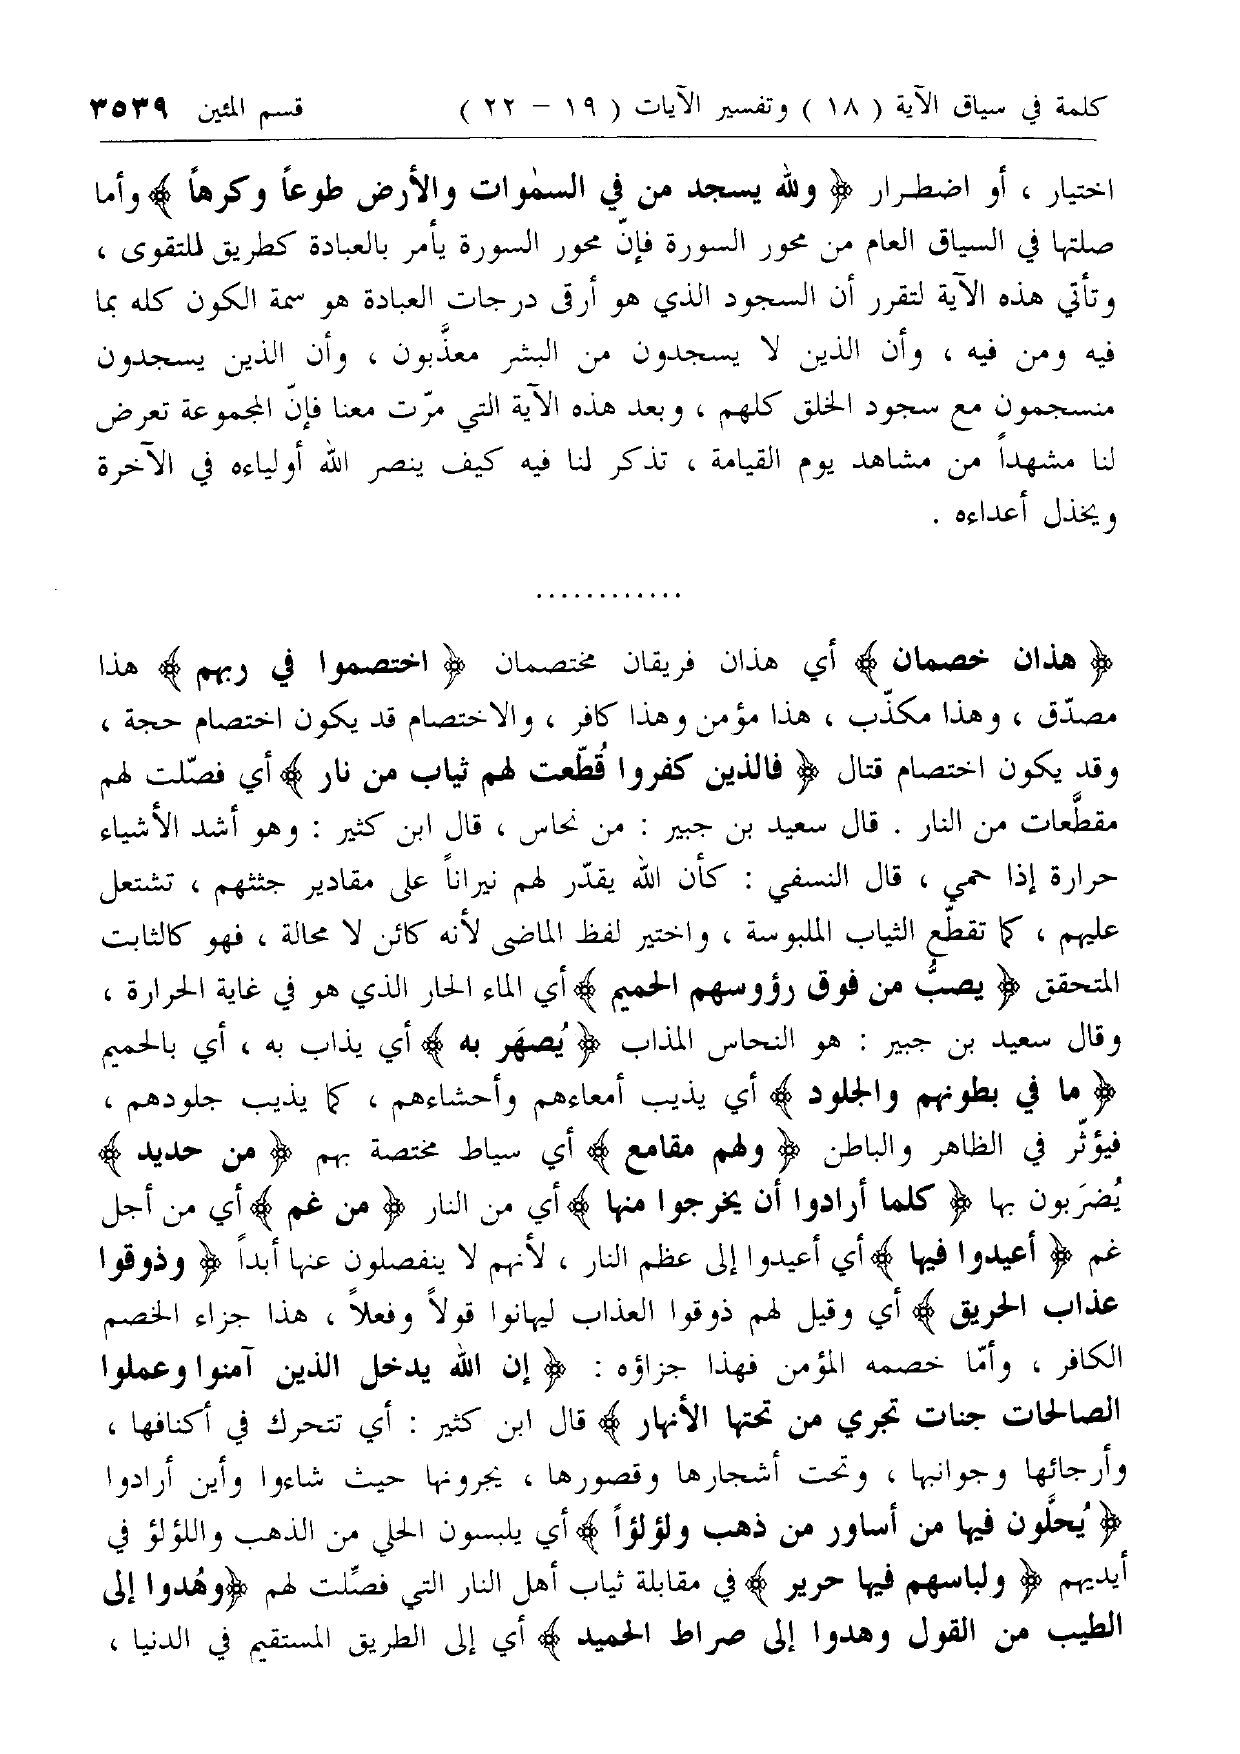 كلمة في سياق الآية ( ١٨ ) وتفسير الآيات ( ١٩ – ٢٢ ) قسم المئين ٣٥٣٩
اختيار ، أو اضطرار ﴿ ولله يسجد من في السمٰوات والأرض طوعاً وكرهاً ﴾ وأما
صلتها في السياق العام من محور السورة فإنّ محور السورة يأمر بالعبادة كطريق للتقوى ،
وتأتي هذه الآية لتقرر أن السجود الذي هو أرقى درجات العبادة هو سمة الكون كله بما
فيه ومن فيه ، وأن الذين لا يسجدون من البشر معذَّبون ، وأن الذين يسجدون
منسجمون مع سجود الخلق كلهم ، وبعد هذه الآية التي مرّت معنا فإنّ المجموعة تعرض
لنا مشهداً من مشاهد يوم القيامة ، تذكر لنا فيه كيف ينصر الله أولياءه في الآخرة
ويخذل أعداءه .
............
﴿ هذان خصمان ﴾ أي هذان فريقان مختصمان ﴿ اختصموا في ربهم ﴾ هذا
مصدّق ، وهذا مكذّب ، هذا مؤمن وهذا كافر ، والاختصام قد يكون اختصام حجة ،
وقد يكون اختصام قتال ﴿ فالذين كفروا قُطّعت لهم ثياب من نار ﴾ أي فصّلت لهم
مقطَّعات من النار . قال سعيد بن جبير : من نحاس ، قال ابن كثير : وهو أشد الأشياء
حرارة إذا حمي ، قال النسفي : كأن الله يقدّر لهم نيراناً على مقادير جثثهم ، تشتعل
عليهم ، كما تقطّع الثياب الملبوسة ، واختير لفظ الماضى لأنه كائن لا محالة ، فهو كالثابت
المتحقق ﴿ يصبُّ من فوق رؤوسهم الحميم ﴾ أي الماء الحار الذي هو في غاية الحرارة ،
وقال سعيد بن جبير : هو النحاس المذاب ﴿ يُصهَر به ﴾ أي يذاب به ، أي بالحميم
﴿ ما في بطونهم والجلود ﴾ أي يذيب أمعاءهم وأحشاءهم ، كما يذيب جلودهم ،
فيؤثّر في الظاهر والباطن ﴿ ولهم مقامع ﴾ أي سياط مختصة بهم ﴿ من حديد ﴾
يُضرَبون بها ﴿ كلما أرادوا أن يخرجوا منها ﴾ أي من النار ﴿ من غم ﴾ أي من أجل
غم ﴿ أعيدوا فيها ﴾ أي أعيدوا إلى عظم النار ، لأنهم لا ينفصلون عنها أبداً ﴿ وذوقوا
عذاب الحريق ﴾ أي وقيل لهم ذوقوا العذاب ليهانوا قولاً وفعلاً ، هذا جزاء الخصم
الكافر ، وأمّا خصمه المؤمن فهذا جزاؤه : ﴿ إن الله يدخل الذين آمنوا وعملوا
الصالحات جنات تجري من تحتها الأنهار ﴾ قال ابن كثير : أي تتحرك في أكنافها ،
وأرجائها وجوانبها ، وتحت أشجارها وقصورها ، يجرونها حيث شاءوا وأين أرادوا
﴿ يُحلَّون فيها من أساور من ذهب ولؤلؤاً ﴾ أي يلبسون الحلي من الذهب واللؤلؤ في
أيديهم ﴿ ولباسهم فيها حرير ﴾ في مقابلة ثياب أهل النار التي فصِّلت لهم ﴿ وهُدوا إلى
الطيب من القول وهدوا إلى صراط الحميد ﴾ أي إلى الطريق المستقيم في الدنيا ،